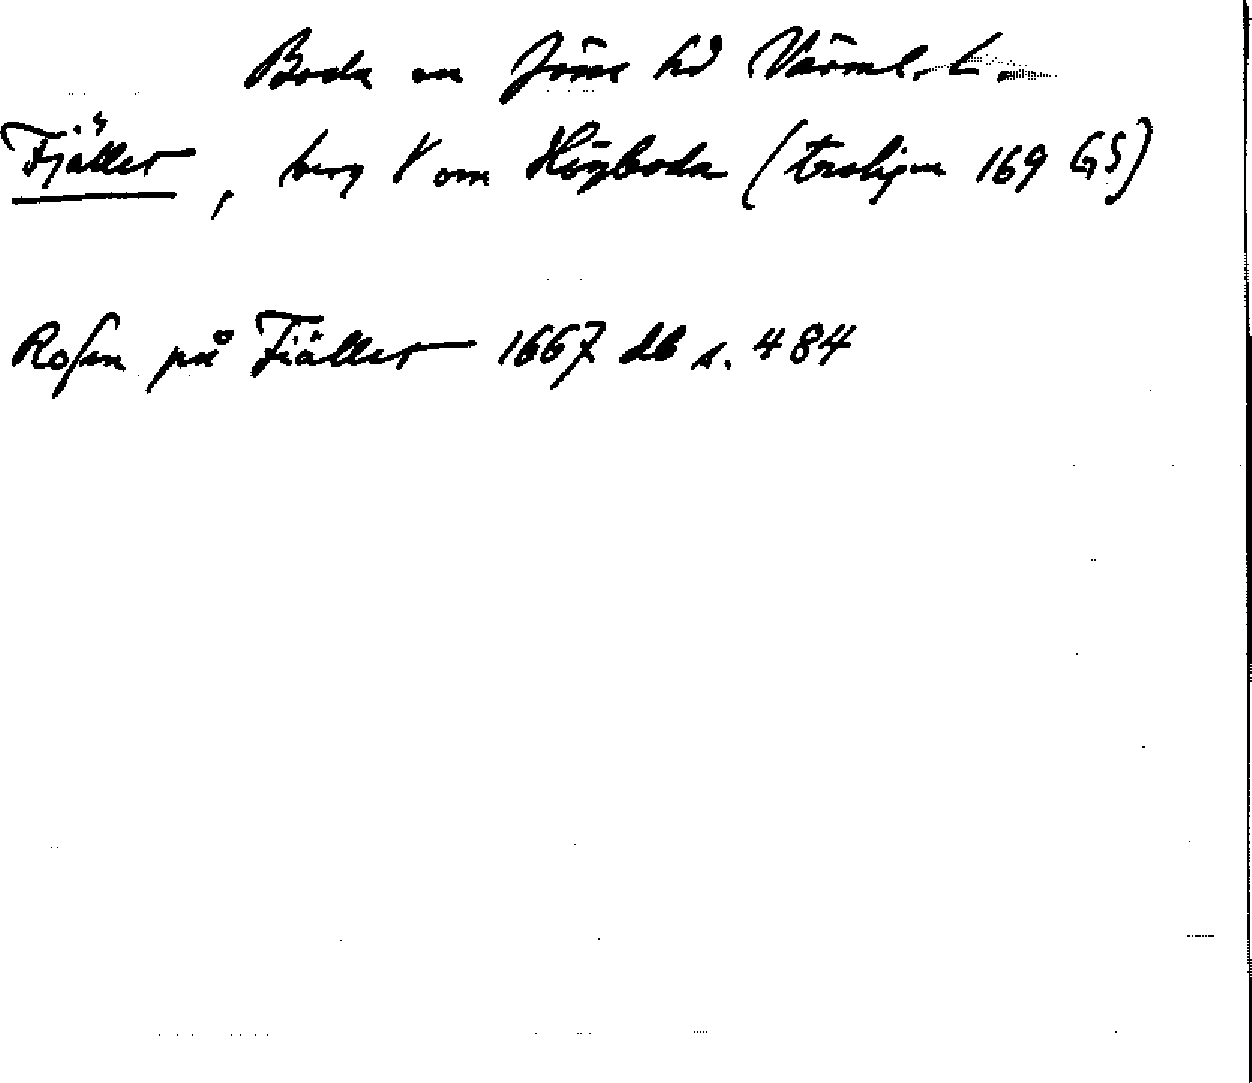 Boda sn Jösse hd Värml. l.
Fjället, berg V om Högboda (troligen 169 GS)
Rosen på Fiället 1667 db s. 484